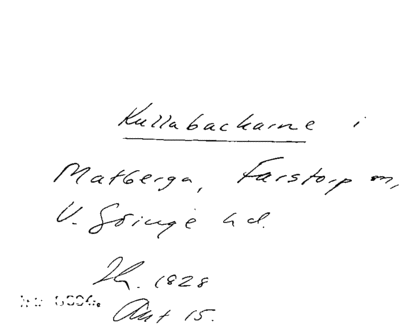 Kullabackarne i
Matberga, Farstorp sn,
V. Göinge hd.
1828
Ant 15.